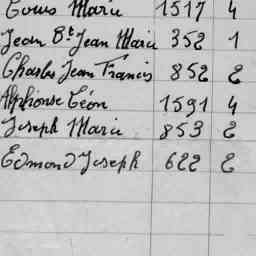 Louis Marie 1517 4
Jean Bte Jean Marie 352 1
Charles Jean Francis 852 2
Alphonse Léon 1591 4
Joseph Marie 853 2
Edmond Joseph 622 2